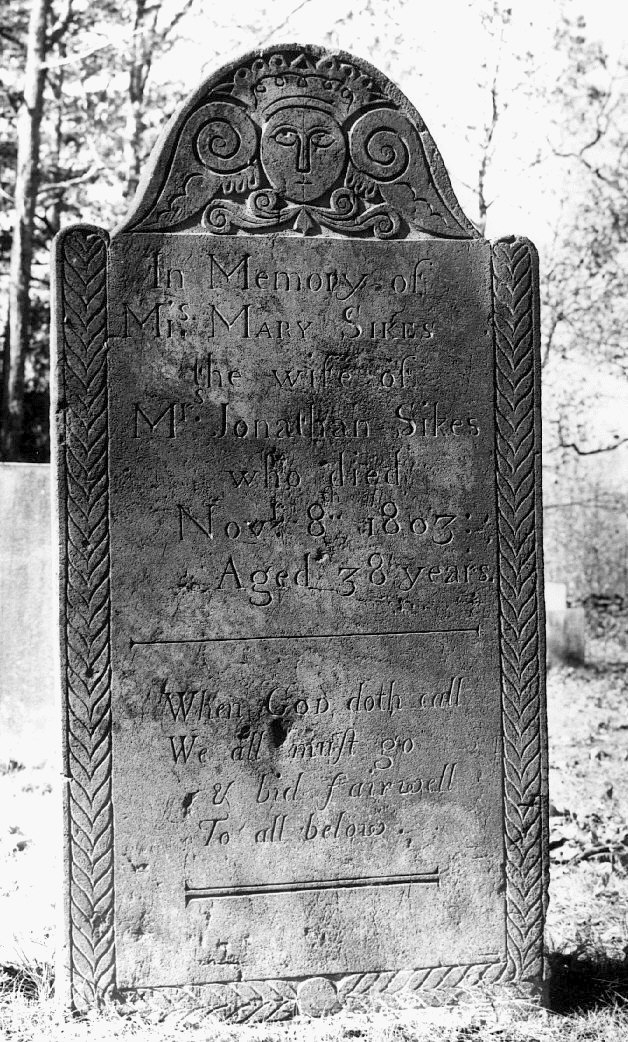 In Memory of
Mrs. MARY SIKES
the wife of
Mr. Jonathan Sikes
who died
Novr. 8th. 1803:
Aged 38 years.
When GOD doth call
We all must go
& bid fairwell
To all below.